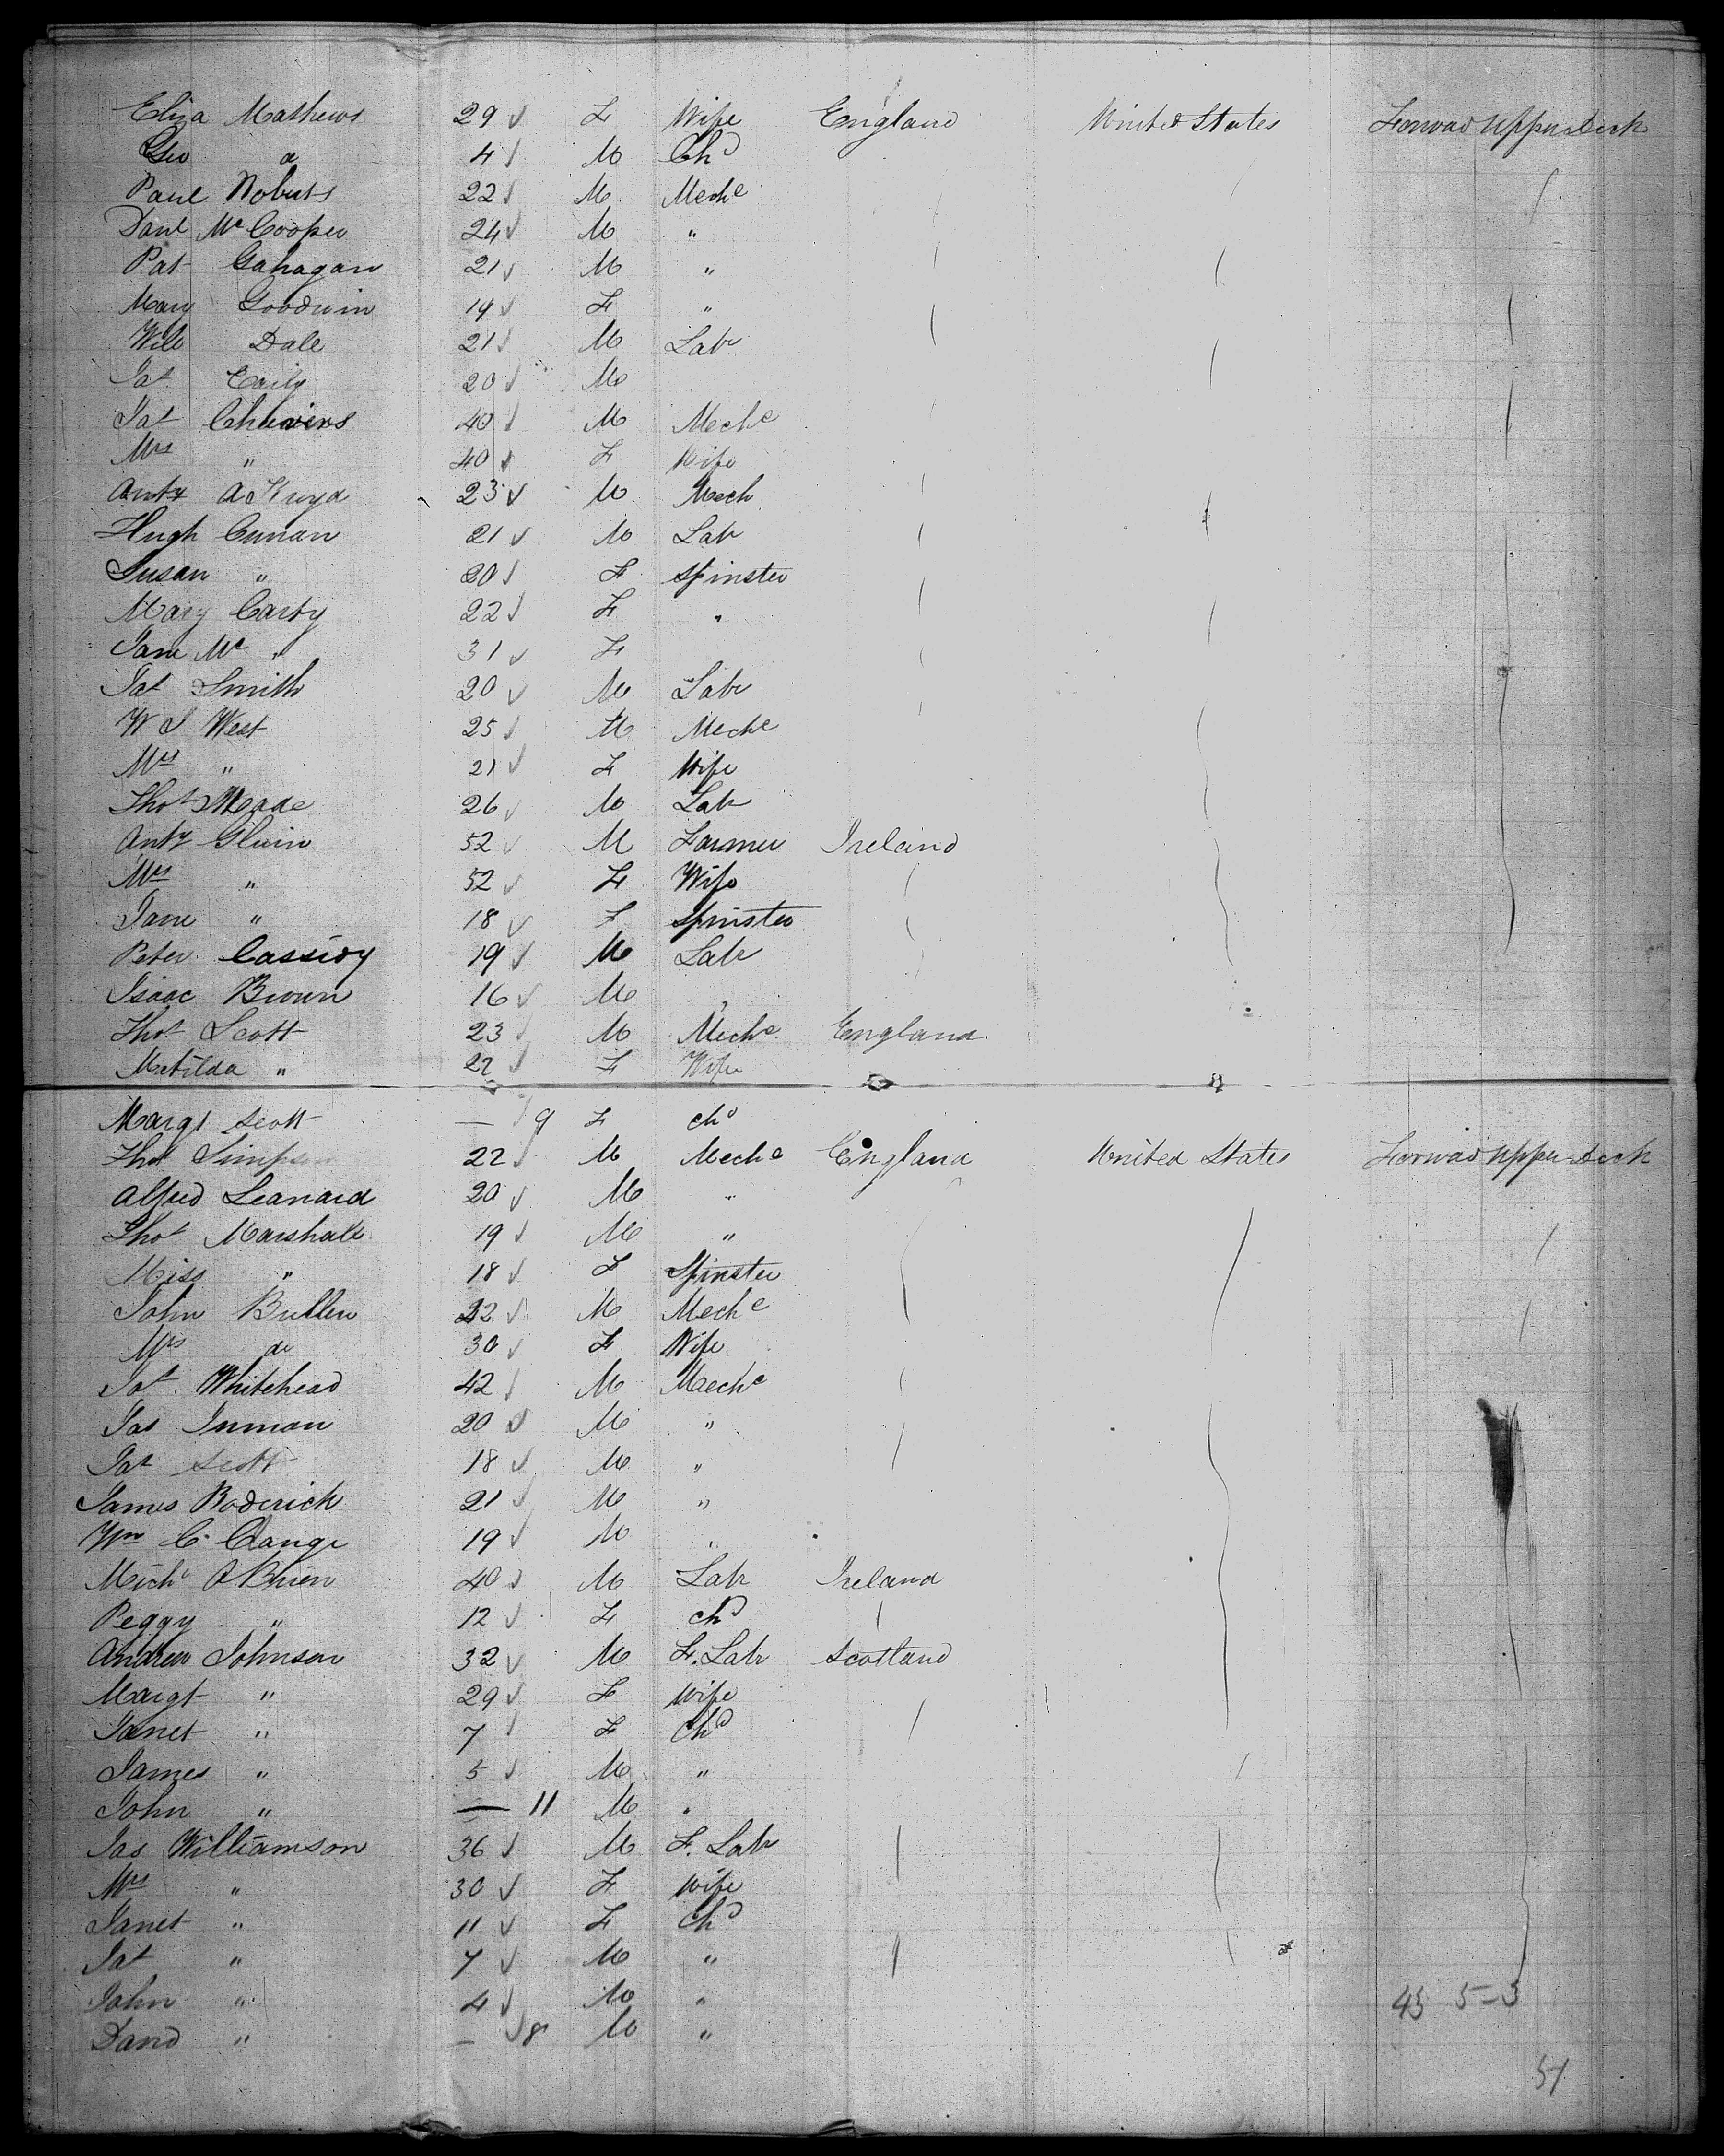 Eliza Mathews 29 F Wife England United States Forwad upper Deck
Geo 4 M Chd
Paul Roberts 22 M Meche
Danl McCooper 24 M "
Pat Gahagan 21 M "
Mary Goodwin 19 F "
Will Dale 21 M Labr
20 M
Chevers 40 M Meche
Mrs " 40 F Wife
Anty 23 M Mech
Hugh Cunan 21 M Labr
Susan " 20 F Spinster
Mary Carty 22 F "
Jane Mc " 31 F
Smith 20 M Labr
W S West 25 M Meche
Mrs " 21 F Wife
Thos Meade 26 M Labr
Anty Gluin 52 M Farmer Ireland
Mrs " 52 F Wife
Jane " 18 F Spinster
Peter Cassidy 19 M Labr
Isaac Brown 16 M "
Thos Scott 23 M Meche England
Matilda " 22 F Wife
Margt Scott — 9 F chd
Thos Simpson 22 M Meche England United States Forwad upper Deck
Alfred Leanard 20 M "
Thos Marshall 19 M "
Miss " 18 F Spinster
John Bullen 32 M Meche
Mrs do 30 F Wife
Jas Whitehead 42 M Meche
Jas Inman 20 M "
Jas Scott 18 M "
James Boderick 21 M "
Wm C Clange 19 M "
Michl O'Brien 40 M Labr Ireland
Peggy " 12 F chd
Andrew Johnson 32 M F. Labr Scotland
Margt " 29 F Wife
Janet " 7 F Chd
James " 5 M "
John " — 11 M "
Jas Williamson 36 M F. Labr
Mrs " 30 F Wife
Janet " 11 F Chd
Jas " 7 M "
John " 4 M "
David " — 8 M "
45 5-3
51